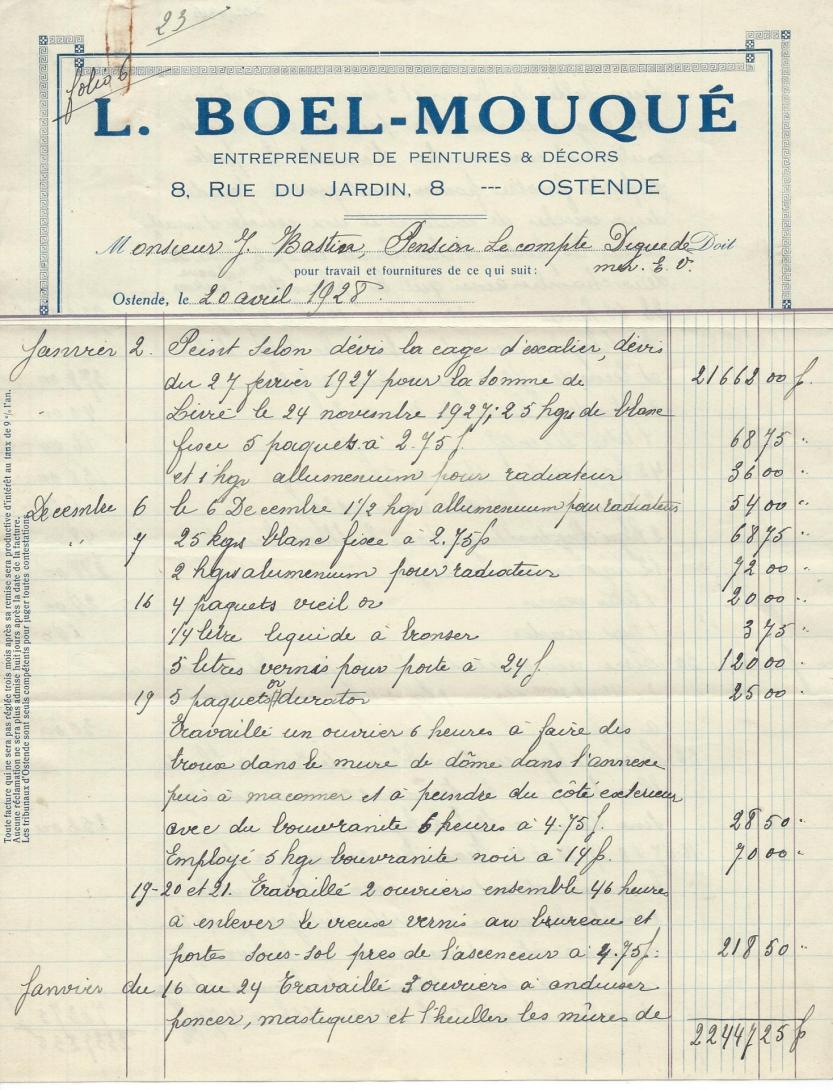 23
folio 6
L. BOEL-MOUQUÉ
ENTREPRENEUR DE PEINTURES & DÉCORS
8, RUE DU JARDIN, 8 --- OSTENDE
Monsieur J. Bastien, Pension Lecompte Digue de Doit
mer. E. V.
pour travail et fournitures de ce qui suit:
Ostende, le 20 avril 1928.
Janvier 2. Peint selon dévis la cage d'escalier, dévis
du 27 fevrier 1927 pour la somme de 21662 00 f.
Livré le 24 novembre 1927; 25 kgrs de blanc
fixee 5 paquets à 2.75 f. 68 75 "
et 1 kgr allumenium pour radiateur 36 00 "
Decembre 6 le 6 Decembre 1 1/2 kgr allumenium pour radiateurs 54 00 "
" 7 25 kgrs blanc fixee à 2.75 f 68 75 "
2 kgrs alumenium pour radiateur 72 00 "
16 4 paquets vieil or 20 00 "
1/4 litre liquide à bronser 3 75 "
5 litres vernis pour porte à 24 f. 120 00 "
19 5 paquets or durator 25 00 "
Travaillé un ouvrier 6 heures à faire des
troux dans le mure de dôme dans l'annexe
puis à maconner et à peindre du côté exterieur
avec du bouvranite 6 heures à 4.75 f. 28 50 "
Employé 5 kgr bouvranite noir à 14 f. 70 00 "
19-20 et 21. Travaillé 2 ouvriers ensemble 46 heures
à enlever le vieux vernis au brureau et
portes sous-sol pres de l'ascenceur à 4.75 f. 218 50 "
Janvier du 16 au 24 Travaillé 3 ouvriers à anduiser
poncer, mastiquer et l'heuller les mûres de
22447 25 f
Toute facture qui ne sera pas réglée trois mois après sa remise sera productive d'intérêt au taux de 9 % l'an.
Aucune réclamation ne sera plus admise huit jours après la date de la facture.
Les tribunaux d'Ostende sont seuls compétents pour juger toutes contestations.